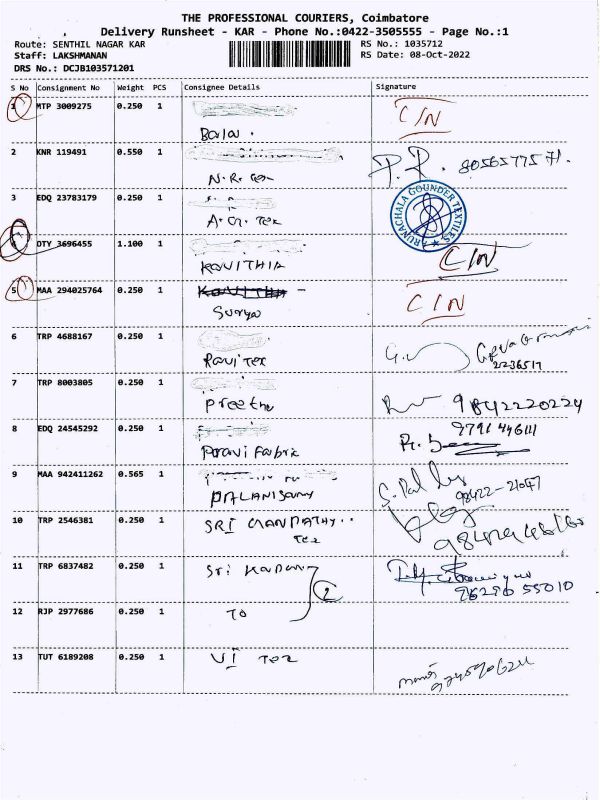 THE PROFESSIONAL COURIERS, Coimbatore
Delivery Runsheet - KAR - Phone No.:0422-3505555 - Page No.:1
Route: SENTHIL NAGAR KAR RS No.: 1035712
Staff: LAKSHMANAN RS Date: 08-Oct-2022
DRS No.: DCJB103571201
S No Consignment No Weight PCS Consignee Details Signature
1 MTP 3009275 0.250 1 C/N
Balaji
2 KNR 119491 0.550 1 P.P. 8056577571.
N.R. Tex
3 EDQ 23783179 0.250 1
A.G. Tex
ARUNACHALA GOUNDER TEXTILES
4 DTY 3696455 1.100 1 C/N
KAVITHIA
5 MAA 294025764 0.250 1 C/N
Surya
6 TRP 4688167 0.250 1
Ravi Tex 2236517
7 TRP 8003805 0.250 1 9842220224
Preethi
8 EDQ 24545292 0.250 1
Paravi Fabric
9 MAA 942411262 0.565 1 S. Pal
PALANISAMY 98422-21047
10 TRP 2546381 0.250 1 SRI GANPATHY
Tex
11 TRP 6837482 0.250 1 Sri Kadan
2 96296 55010
12 RJP 2977686 0.250 1 TO
13 TUT 6189208 0.250 1 VI Tex